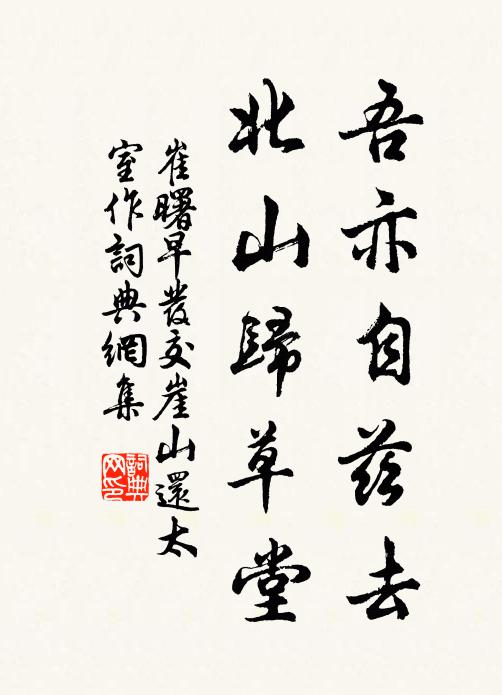 吾亦自茲去
北山歸草堂
崔曙早發交崖山還太
室作詞典網集
詞典網印